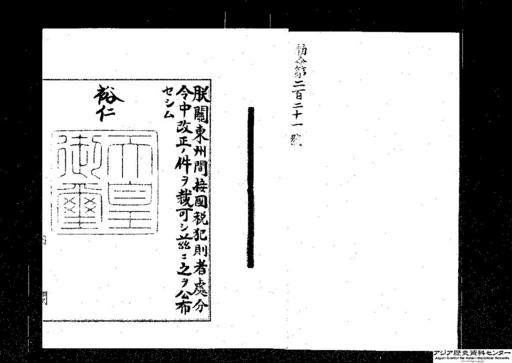 勅令第二百二十一號
朕關東州間接國税犯則者處分
令中改正ノ件ヲ裁可シ茲ニ之ヲ公布
セシム
裕仁
天皇
御璽
アジア歴史資料センター
Japan Center for Asian Historical Records